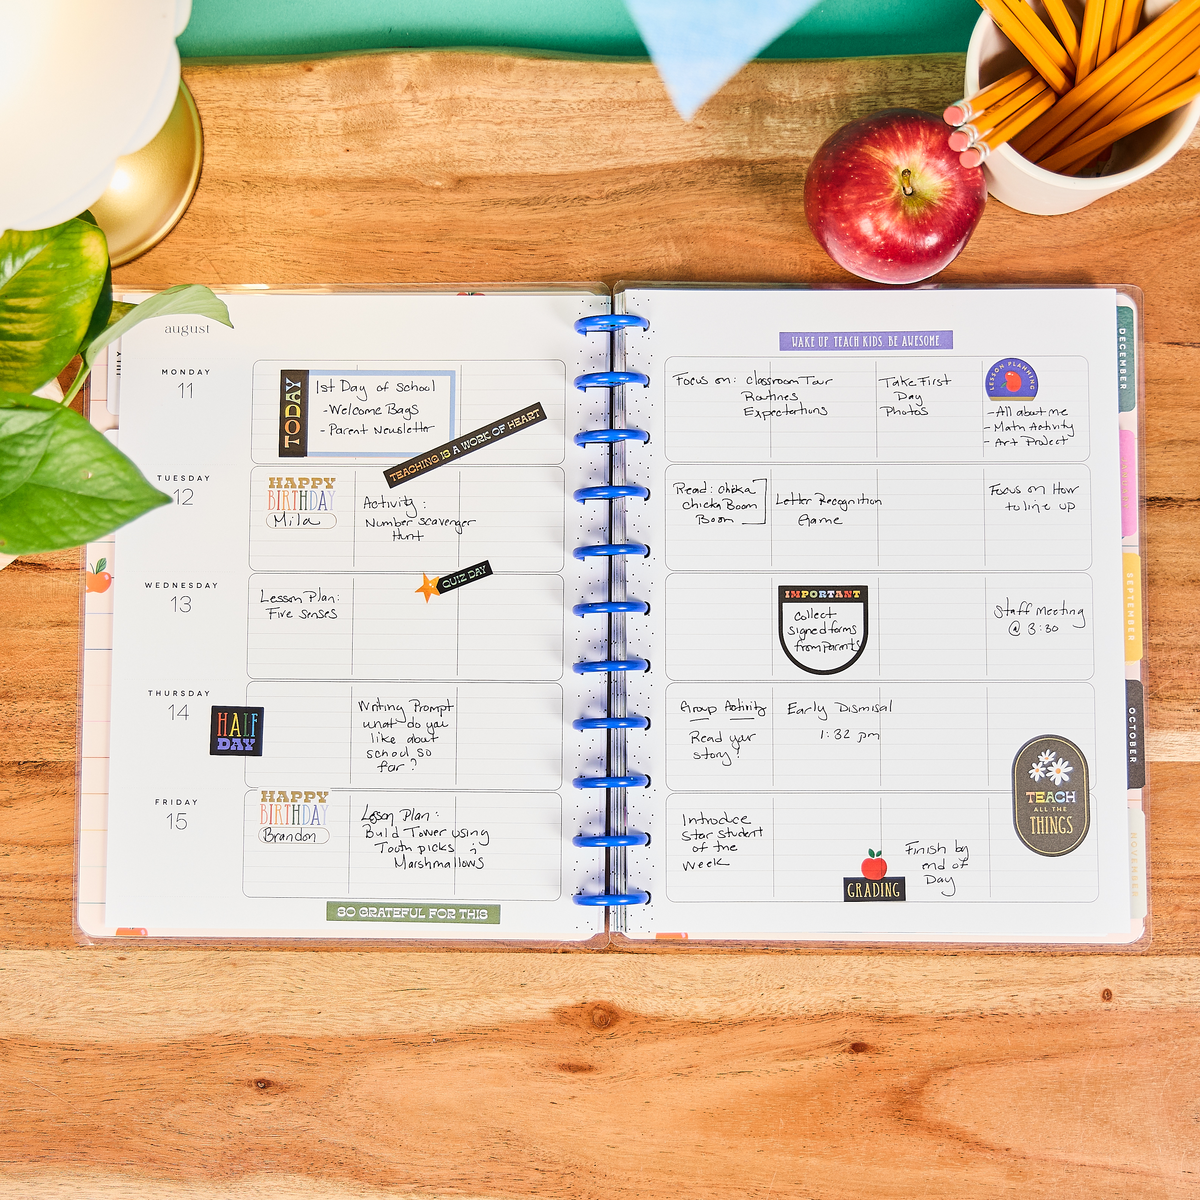 august
MONDAY
11
TODAY
1st Day of school
- Welcome Bags
- Parent Newsletter
TEACHING IS A WORK OF HEART
TUESDAY
12
HAPPY
BIRTHDAY
Mila
Activity:
Number scavenger
Hunt
WEDNESDAY
13
Lesson Plan:
Five senses
QUIZ DAY
THURSDAY
14
HALF
DAY
Writing Prompt
what do you
like about
school so
far?
FRIDAY
15
HAPPY
BIRTHDAY
Brandon
Lesson Plan:
Build Tower using
Tooth picks &
Marshmallows
SO GRATEFUL FOR THIS
WAKE UP. TEACH KIDS. BE AWESOME.
Focus on: classroom Tour
Routines
Expectations
Take First
Day
Photos
LESSON PLANNING
- All about me
- Math Activity
- Art Project
Read: chicka
chicka Boom
Boom
Letter Recognition
Game
Focus on How
to line up
IMPORTANT
collect
signed forms
from parents
Staff meeting
@ 3:30
Group Activity
Read your
story!
Early Dismisal
1:32 pm
TEACH
ALL THE
THINGS
Introduce
Star student
of the
week
GRADING
Finish by
end of
Day
DECEMBER
SEPTEMBER
OCTOBER
NOVEMBER